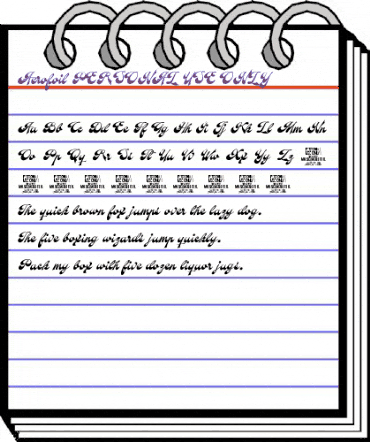 Aerofoil PERSONAL USE ONLY
Aa Bb Cc Dd Ee Ff Gg Hh Ii Jj Kk Ll Mm Nn
Oo Pp Qq Rr Ss Tt Uu Vv Ww Xx Yy Zz
The quick brown fox jumps over the lazy dog.
The five boxing wizards jump quickly.
Pack my box with five dozen liquor jugs.